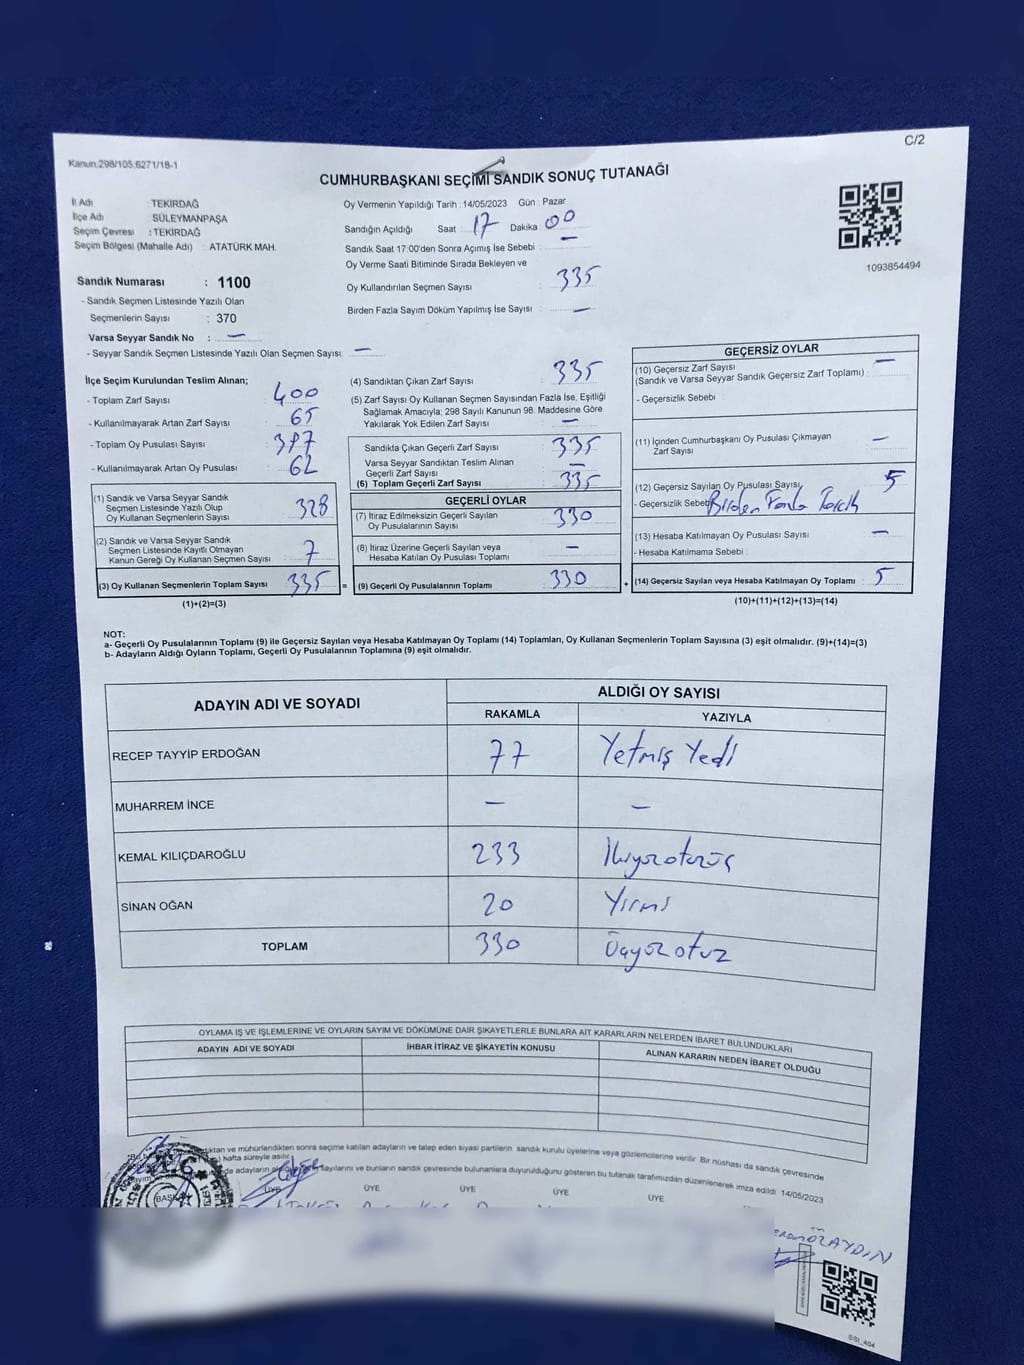 C/2
Kanun.298/105,6271/18-1
CUMHURBAŞKANI SEÇİMİ SANDIK SONUÇ TUTANAĞI
İl Adı : TEKİRDAĞ
İlçe Adı : SÜLEYMANPAŞA
Seçim Çevresi : TEKİRDAĞ
Seçim Bölgesi (Mahalle Adı) : ATATÜRK MAH.
Sandık Numarası : 1100
- Sandık Seçmen Listesinde Yazılı Olan
Seçmenlerin Sayısı : 370
Varsa Seyyar Sandık No : —
- Seyyar Sandık Seçmen Listesinde Yazılı Olan Seçmen Sayısı : —
Oy Vermenin Yapıldığı Tarih : 14/05/2023 Gün : Pazar
Sandığın Açıldığı Saat : 17 Dakika : 00
Sandık Saat 17:00'den Sonra Açımış İse Sebebi : —
Oy Verme Saati Bitiminde Sırada Bekleyen ve
Oy Kullandırılan Seçmen Sayısı : 335
Birden Fazla Sayım Döküm Yapılmış İse Sayısı : —
1093854494
İlçe Seçim Kurulundan Teslim Alınan;
- Toplam Zarf Sayısı : 400
- Kullanılmayarak Artan Zarf Sayısı : 65
- Toplam Oy Pusulası Sayısı : 397
- Kullanılmayarak Artan Oy Pusulası : 62
(1) Sandık ve Varsa Seyyar Sandık
Seçmen Listesinde Yazılı Olup
Oy Kullanan Seçmenlerin Sayısı : 328
(2) Sandık ve Varsa Seyyar Sandık
Seçmen Listesinde Kayıtlı Olmayan
Kanun Gereği Oy Kullanan Seçmen Sayısı : 7
(3) Oy Kullanan Seçmenlerin Toplam Sayısı : 335 =
(1)+(2)=(3)
(4) Sandıktan Çıkan Zarf Sayısı : 335
(5) Zarf Sayısı Oy Kullanan Seçmen Sayısından Fazla İse, Eşitliği
Sağlamak Amacıyla; 298 Sayılı Kanunun 98. Maddesine Göre
Yakılarak Yok Edilen Zarf Sayısı : —
Sandıkta Çıkan Geçerli Zarf Sayısı : 335
Varsa Seyyar Sandıktan Teslim Alınan
Geçerli Zarf Sayısı : —
(6) Toplam Geçerli Zarf Sayısı : 335
GEÇERLİ OYLAR
(7) İtiraz Edilmeksizin Geçerli Sayılan
Oy Pusulalarının Sayısı : 330
(8) İtiraz Üzerine Geçerli Sayılan veya
Hesaba Katılan Oy Pusulası Toplamı : —
(9) Geçerli Oy Pusulalarının Toplamı : 330 +
GEÇERSİZ OYLAR
(10) Geçersiz Zarf Sayısı
(Sandık ve Varsa Seyyar Sandık Geçersiz Zarf Toplamı) : —
- Geçersizlik Sebebi :
(11) İçinden Cumhurbaşkanı Oy Pusulası Çıkmayan
Zarf Sayısı : —
(12) Geçersiz Sayılan Oy Pusulası Sayısı : 5
- Geçersizlik Sebebi Birden Fazla Tercih
(13) Hesaba Katılmayan Oy Pusulası Sayısı : —
- Hesaba Katılmama Sebebi :
(14) Geçersiz Sayılan veya Hesaba Katılmayan Oy Toplamı : 5
(10)+(11)+(12)+(13)=(14)
NOT:
a- Geçerli Oy Pusulalarının Toplamı (9) ile Geçersiz Sayılan veya Hesaba Katılmayan Oy Toplamı (14) Toplamları, Oy Kullanan Seçmenlerin Toplam Sayısına (3) eşit olmalıdır. (9)+(14)=(3)
b- Adayların Aldığı Oyların Toplamı, Geçerli Oy Pusulalarının Toplamına (9) eşit olmalıdır.
ADAYIN ADI VE SOYADI
ALDIĞI OY SAYISI
RAKAMLA YAZIYLA
RECEP TAYYİP ERDOĞAN 77 Yetmiş Yedi
MUHARREM İNCE — —
KEMAL KILIÇDAROĞLU 233 İkiyüzotuzüç
SİNAN OĞAN 20 Yirmi
TOPLAM 330 Üçyüzotuz
OYLAMA İŞ VE İŞLEMLERİNE VE OYLARIN SAYIM VE DÖKÜMÜNE DAİR ŞİKAYETLERLE BUNLARA AİT KARARLARIN NELERDEN İBARET BULUNDUKLARI
ADAYIN ADI VE SOYADI İHBAR İTİRAZ VE ŞİKAYETİN KONUSU ALINAN KARARIN NEDEN İBARET OLDUĞU
ve mühürlendikten sonra seçime katılan adayların ve talep eden siyasi partilerin sandık kurulu üyelerine veya gözlemcilerine verilir. Bir nüshası da sandık çevresinde
hafta süreyle asılır.
sayılarını ve bunların sandık çevresinde bulunanlara duyurulduğunu gösteren bu tutanak tarafımızdan düzenlenerek imza edildi. 14/05/2023
ÜYE ÜYE ÜYE ÜYE ÜYE
BAŞKAN
ÖZAYDIN